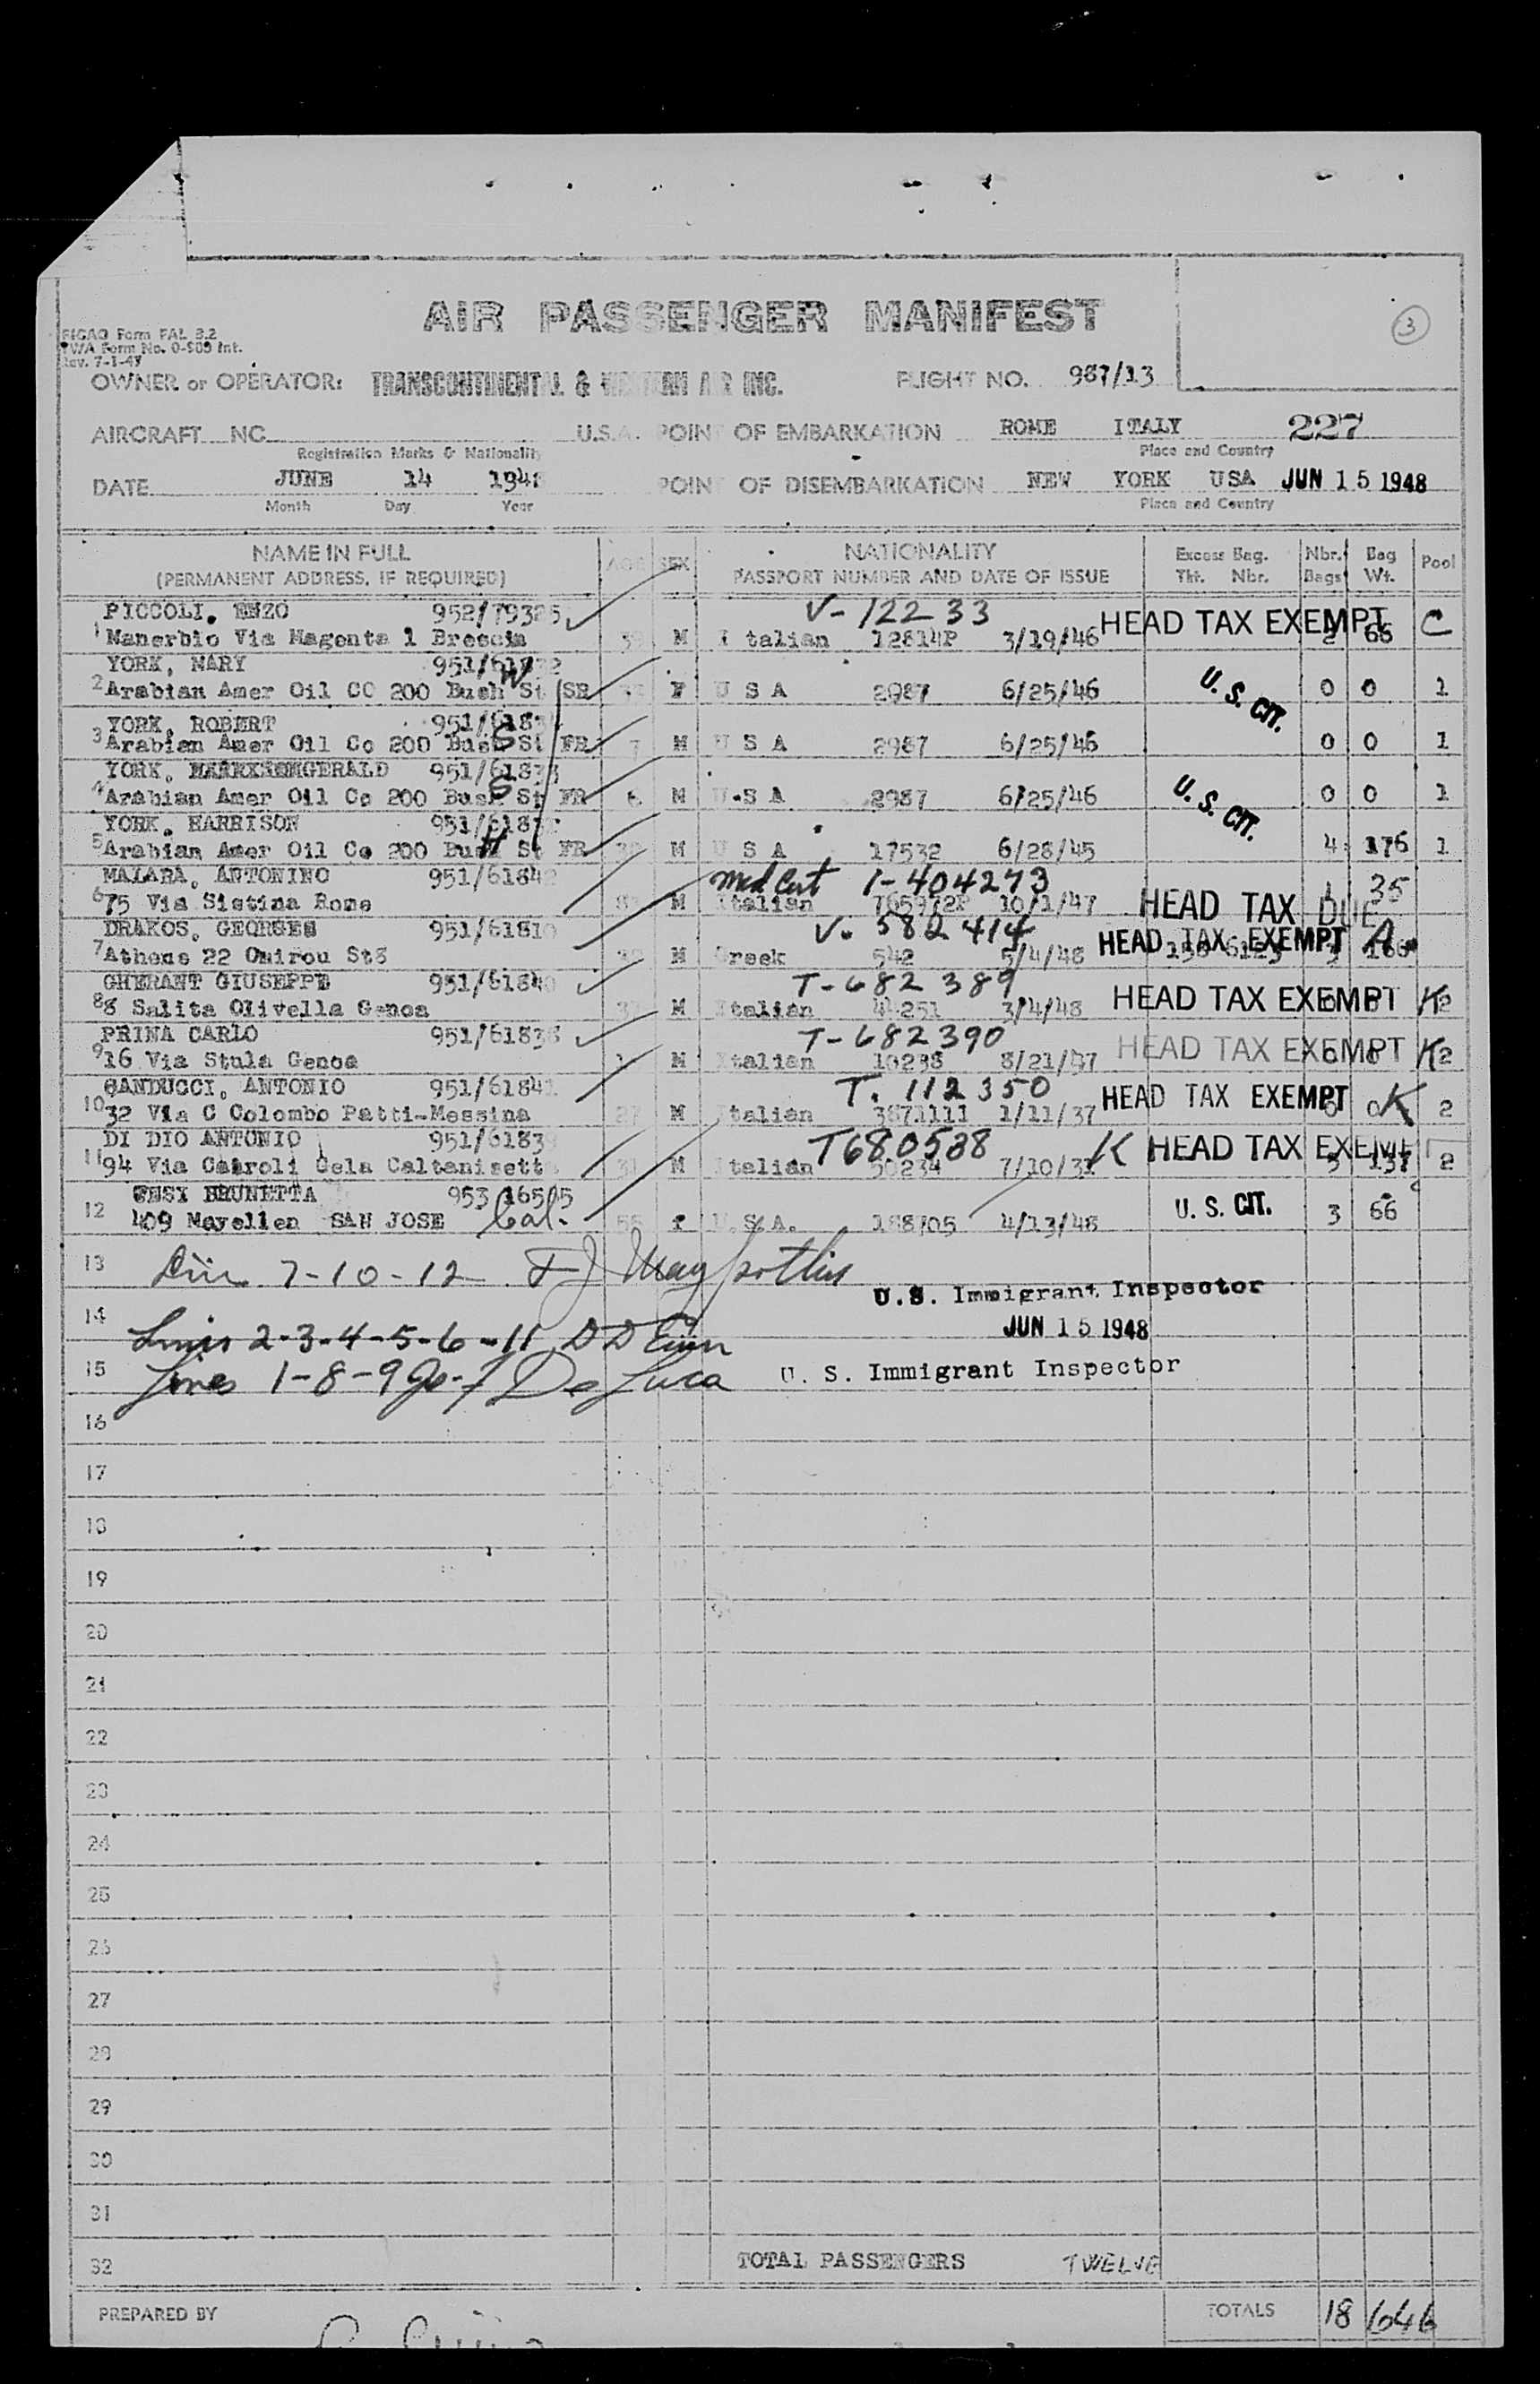 3
AIR PASSENGER MANIFEST
TWA Form No. Int.
Rev. 7-1-47
OWNER or OPERATOR: TRANSCONTINENTAL & WESTERN AIR INC. FLIGHT NO. 987/13
AIRCRAFT NC U.S.A. POINT OF EMBARKATION ROME ITALY 227
Registration Marks & Nationality Place and Country
DATE JUNE 14 1948 POINT OF DISEMBARKATION NEW YORK USA JUN 15 1948
Month Day Year Place and Country
NAME IN FULL AGE SEX NATIONALITY Excess Bag. Nbr. Bag Pool
(PERMANENT ADDRESS, IF REQUIRED) PASSPORT NUMBER AND DATE OF ISSUE Tkt. Nbr. Bags Wt.
PICCOLI. ENZO 952/79325 V-122233 HEAD TAX EXEMPT C
1 Manerbio Via Magenta 1 Brescia M Italian 12814P 3/19/46 66
YORK, MARY W
2 Arabian Amer Oil CO 200 Bush St SR F U S A 2987 6/25/46 U.S. CIT. 0 0 1
YORK, ROBERT S
3 Arabian Amer Oil Co 200 Bush St FR 7 M U S A 2987 6/25/46 0 0 1
YORK, GERALD 951/61833 S
4 Arabian Amer Oil Co 200 Bush St FR 6 M U.S A 2987 6/25/46 U.S. CIT. 0 0 1
YORK. HARRISON H
5 Arabian Amer Oil Co 200 Bush St FR M U S A 17532 6/28/45 4 176 1
MALARA, ANTONINO 951/61842 Med Cert 1-404273 35
6 75 Via Sistina Rome M Italian 765972P 10/1/47 HEAD TAX DUE
DRAKOS, GEORGES 951/61810 V. 582414 HEAD TAX EXEMPT A
7 Athens 22 Omirou St M Greek 542 5/4/48
GHERANT GIUSEPPE 951/61840 T-682389
8 8 Salita Olivella Genoa M Italian 44251 3/4/48 HEAD TAX EXEMPT K2
PRINA CARLO 951/61838 T-682390
9 16 Via Stula Genoa M Italian 10238 8/21/47 HEAD TAX EXEMPT K2
GANDUCCI, ANTONIO 951/61841 T. 112350
10 32 Via C Colombo Patti-Messina 27 M Italian 3871111 1/11/37 HEAD TAX EXEMPT 0 0 K 2
DI DIO ANTONIO 951/61839 T680538 K HEAD TAX EXEMPT
11 94 Via Cairoli Gela Caltanisetta 31 M Italian 50234 7/10/37 2
BRUNETTA 953 16505
12 409 Mayellen SAN JOSE Cal. U.S.A. 188705 4/13/48 U.S. CIT. 3 66
13 7-10-12
U.S. Immigrant Inspector
14 JUN 15 1948
Lines 2-3-4-5-6-11
15 Lines 1-8-9 De Luca U. S. Immigrant Inspector
16
17
18
19
20
21
22
23
24
25
26
27
28
29
30
31
32 TOTAL PASSENGERS TWELVE
PREPARED BY TOTALS 18 646